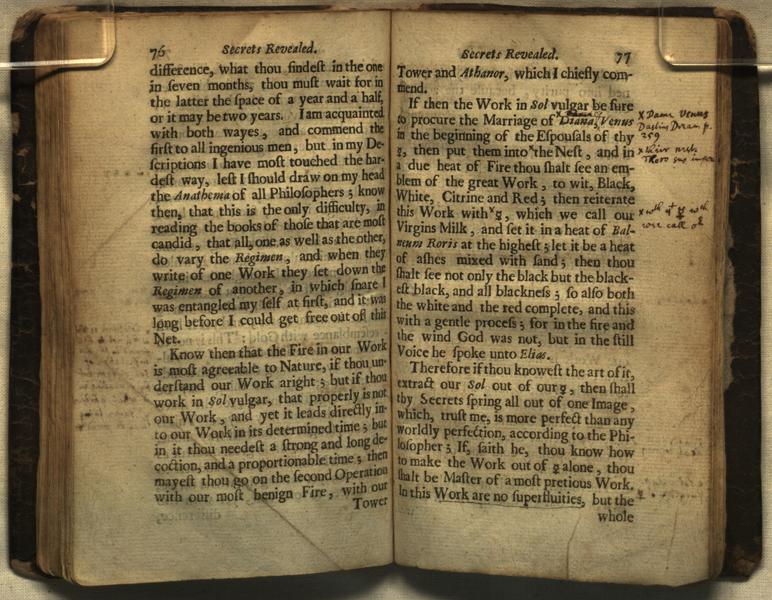 76 Secrets Revealed.
difference, what thou findest in the one
in seven months, thou must wait for in
the latter the space of a year and a half,
or it may be two years. I am acquainted
with both wayes, and commend the
first to all ingenious men, but in my De-
scriptions I have most touched the har-
dest way, lest I should draw on my head
the Anathema of all Philosophers; know
then, that this is the only difficulty, in
reading the books of those that are most
candid, that all, one as well as the other,
do vary the Regimen, and when they
write of one Work they set down the
Regimen of another, in which snare I
was entangled my self at first, and it was
long before I could get free out of this
Net.
Know then that the Fire in our Work
is most agreeable to Nature, if thou un-
derstand our Work aright; but if thou
work in Sol vulgar, that properly is not
our Work, and yet it leads directly in-
to our Work in its determined time; but
in it thou needest a strong and long de-
coction, and a proportionable time; then
mayest thou go on the second Operation
with our most benign Fire, with our
Tower
Secrets Revealed. 77
Tower and Athanor, which I chiefly com-
mend.
If then the Work in Sol vulgar be sure
to procure the Marriage of Diana, Venus
in the beginning of the Espousals of thy
☿, then put them into the Nest, and in
a due heat of Fire thou shalt see an em-
blem of the great Work, to wit, Black,
White, Citrine and Red; then reiterate
this Work with ☿, which we call our
Virgins Milk, and set it in a heat of Bal-
neum Roris at the highest; let it be a heat
of ashes mixed with sand; then thou
shalt see not only the black but the black-
est black, and all blackness; so also both
the white and the red complete, and this
with a gentle process; for in the fire and
the wind God was not, but in the still
Voice he spoke unto Elias.
Therefore if thou knowest the art of it,
extract our Sol out of our ☿, then shall
thy Secrets spring all out of one Image,
which, trust me, is more perfect than any
worldly perfection, according to the Phi-
losopher; If, saith he, thou know how
to make the Work out of ☿ alone, thou
shalt be Master of a most pretious Work.
In this Work are no superfluities, but the
whole
x Dame Venus
p.
359